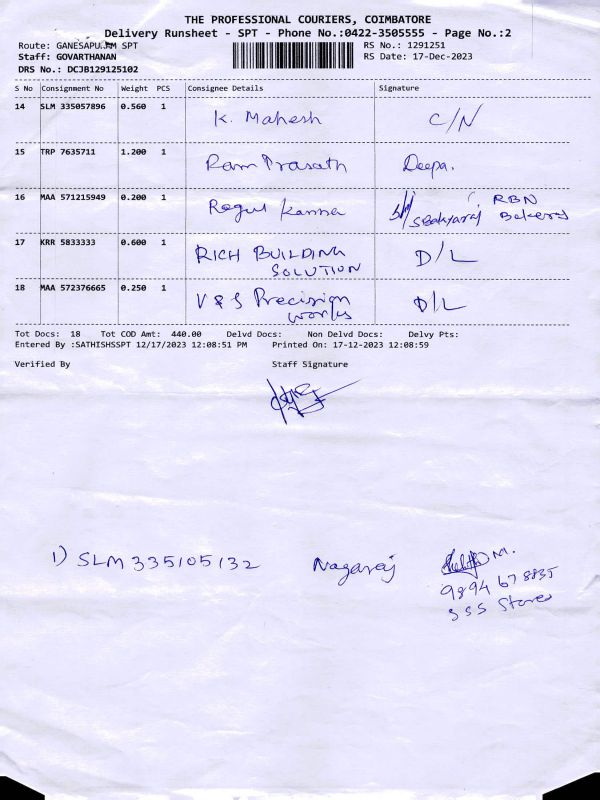 THE PROFESSIONAL COURIERS, COIMBATORE
Delivery Runsheet - SPT - Phone No.:0422-3505555 - Page No.:2
Route: GANESAPURAM SPT RS No.: 1291251
Staff: GOVARTHANAN RS Date: 17-Dec-2023
DRS No.: DCJB129125102
S No Consignment No Weight PCS Consignee Details Signature
14 SLM 335057896 0.560 1 K. Mahesh C/N
15 TRP 7635711 1.200 1 Ram Prasath Deepa.
16 MAA 571215949 0.200 1 Ragul Kanna RBN
Bakery
17 KRR 5833333 0.600 1 RICH BUILDING D/L
SOLUTION
18 MAA 572376665 0.250 1 V & S Precision D/L
works
Tot Docs: 18 Tot COD Amt: 440.00 Delvd Docs: Non Delvd Docs: Delvy Pts:
Entered By :SATHISHSSPT 12/17/2023 12:08:51 PM Printed On: 17-12-2023 12:08:59
Verified By Staff Signature
1) SLM 335105132 Nagaraj M.
9894678835
SSS Stores